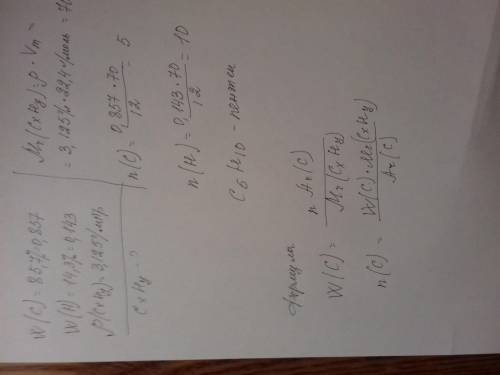 W(C) = 85,7% = 0,857
W(H) = 14,3% = 0,143
ρ(CxHy) = 3,125 г/мл
CxHy - ?
Mr(CxHy) = ρ · Vm =
= 3,125 г/л · 22,4 л/моль = 70
n(C) = 0,857 · 70 / 12 = 5
n(H) = 0,143 · 70 / 12 = 10
C5H10 - пентен
формулы
W(C) = n Ar(C) / Mr(CxHy)
n(C) = W(C) · Mr(CxHy) / Ar(C)